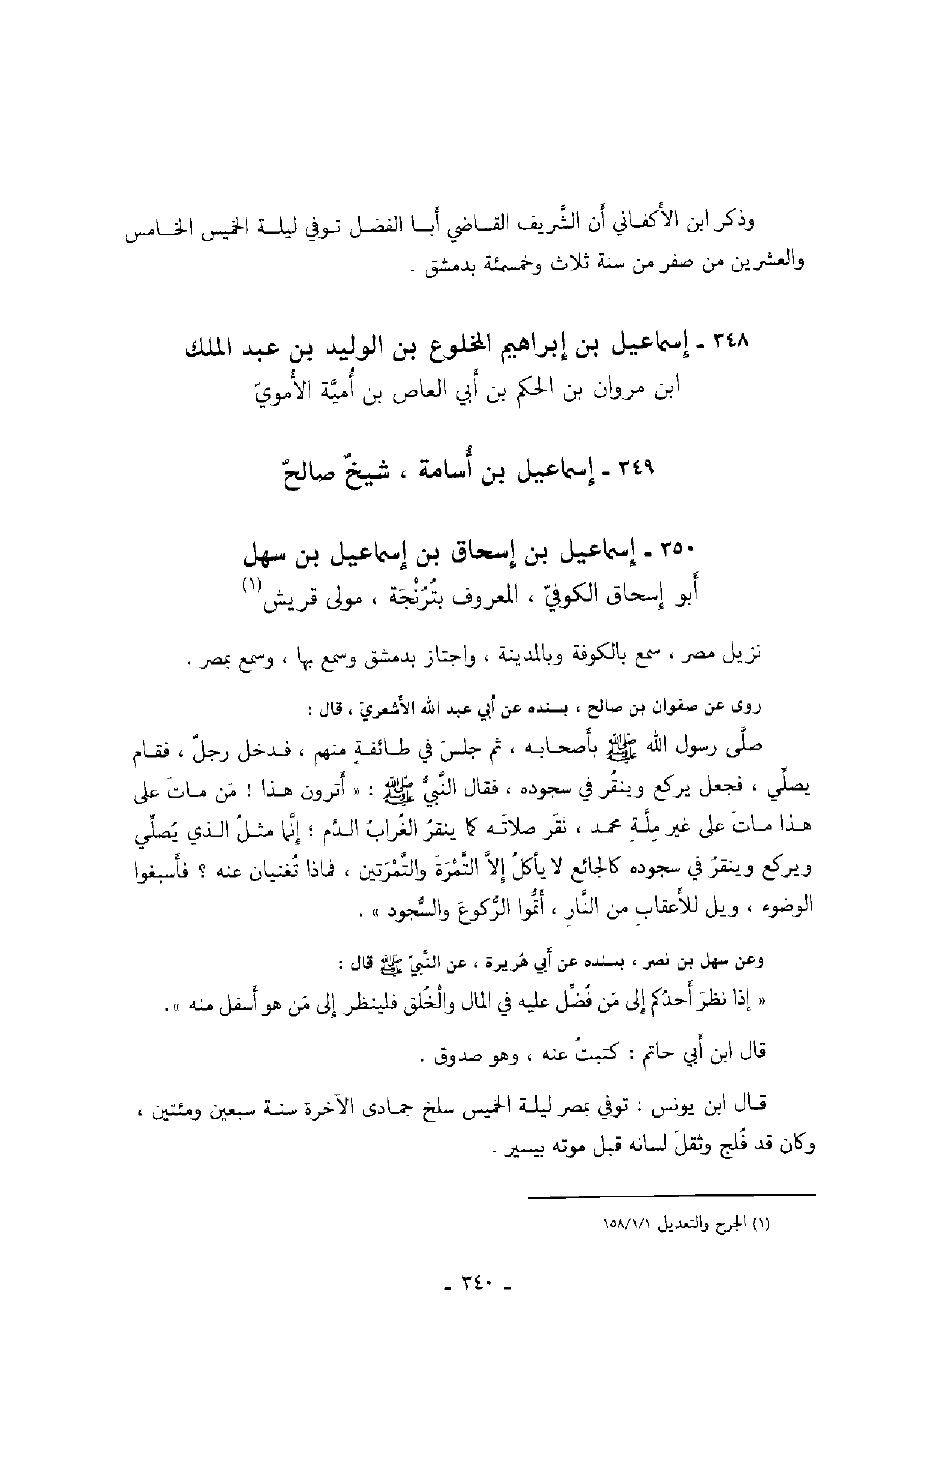 وذكر ابن الأكفاني أن الشَّريف القاضي أبا الفضل توفي ليلة الخميس الخامس
والعشرين من صفر من سنة ثلاث وخمسمئة بدمشق .
٣٤٨ ـ إسماعيل بن إبراهيم المخلوع بن الوليد بن عبد الملك
ابن مروان بن الحكم بن أبي العاص بن أُميَّة الأُمويّ
٣٤٩ ـ إسماعيل بن أُسامة ، شيخٌ صالحٌ
٣٥٠ ـ إسماعيل بن إسحاق بن إسماعيل بن سهل
أبو إسحاق الكوفيّ ، المعروف بتُرُنْجَة ، مولى قريش(١)
نزيل مصر ، سمع بالكوفة وبالمدينة ، واجتاز بدمشق وسمع بها ، وسمع بمصر .
روى عن صفوان بن صالح ، بسنده عن أبي عبد الله الأشعريّ ، قال :
صلَّى رسول الله ﷺ بأصحابه ، ثم جلسَ في طائفةٍ منهم ، فدخل رجلٌ ، فقام
يصلِّي ، فجعل يركع وينقُر في سجوده ، فقال النَّبيُّ ﷺ : « أَترون هذا ! مَن ماتَ على
هذا ماتَ على غير مِلَّةِ محمد ، نقَر صلاتَه كما ينقرُ الغُرابُ الدَّم ؛ إنَّما مثلُ الذي يُصلِّي
ويركع وينقرُ في سجوده كالجائع لا يأكلُ إلاَّ التَّمْرَةَ والتَّمْرَتين ، فماذا تُغنيان عنه ؟ فأَسبغوا
الوضوء ، ويل للأَعقابِ من النَّارِ ، أَتمُّوا الرُّكوعَ والسُّجود » .
وعن سهل بن نصر ، بسنده عن أبي هُريرة ، عن النَّبيّ ﷺ قال :
« إذا نظرَ أَحدُكم إلى مَن فُضِّل عليه في المال والْخُلق فلينظر إلى مَن هو أسفل منه ».
قال ابن أبي حاتم : كتبتُ عنه ، وهو صدوق .
قال ابن يونس : توفي بمصر ليلة الخميس سلخ جمادى الآخرة سنة سبعين ومئتين ،
وكان قد فُلج وثقلَ لسانه قبل موته بيسير .
(١) الجرح والتعديل ١٥٨/١/١
ـ ٣٤٠ ـ